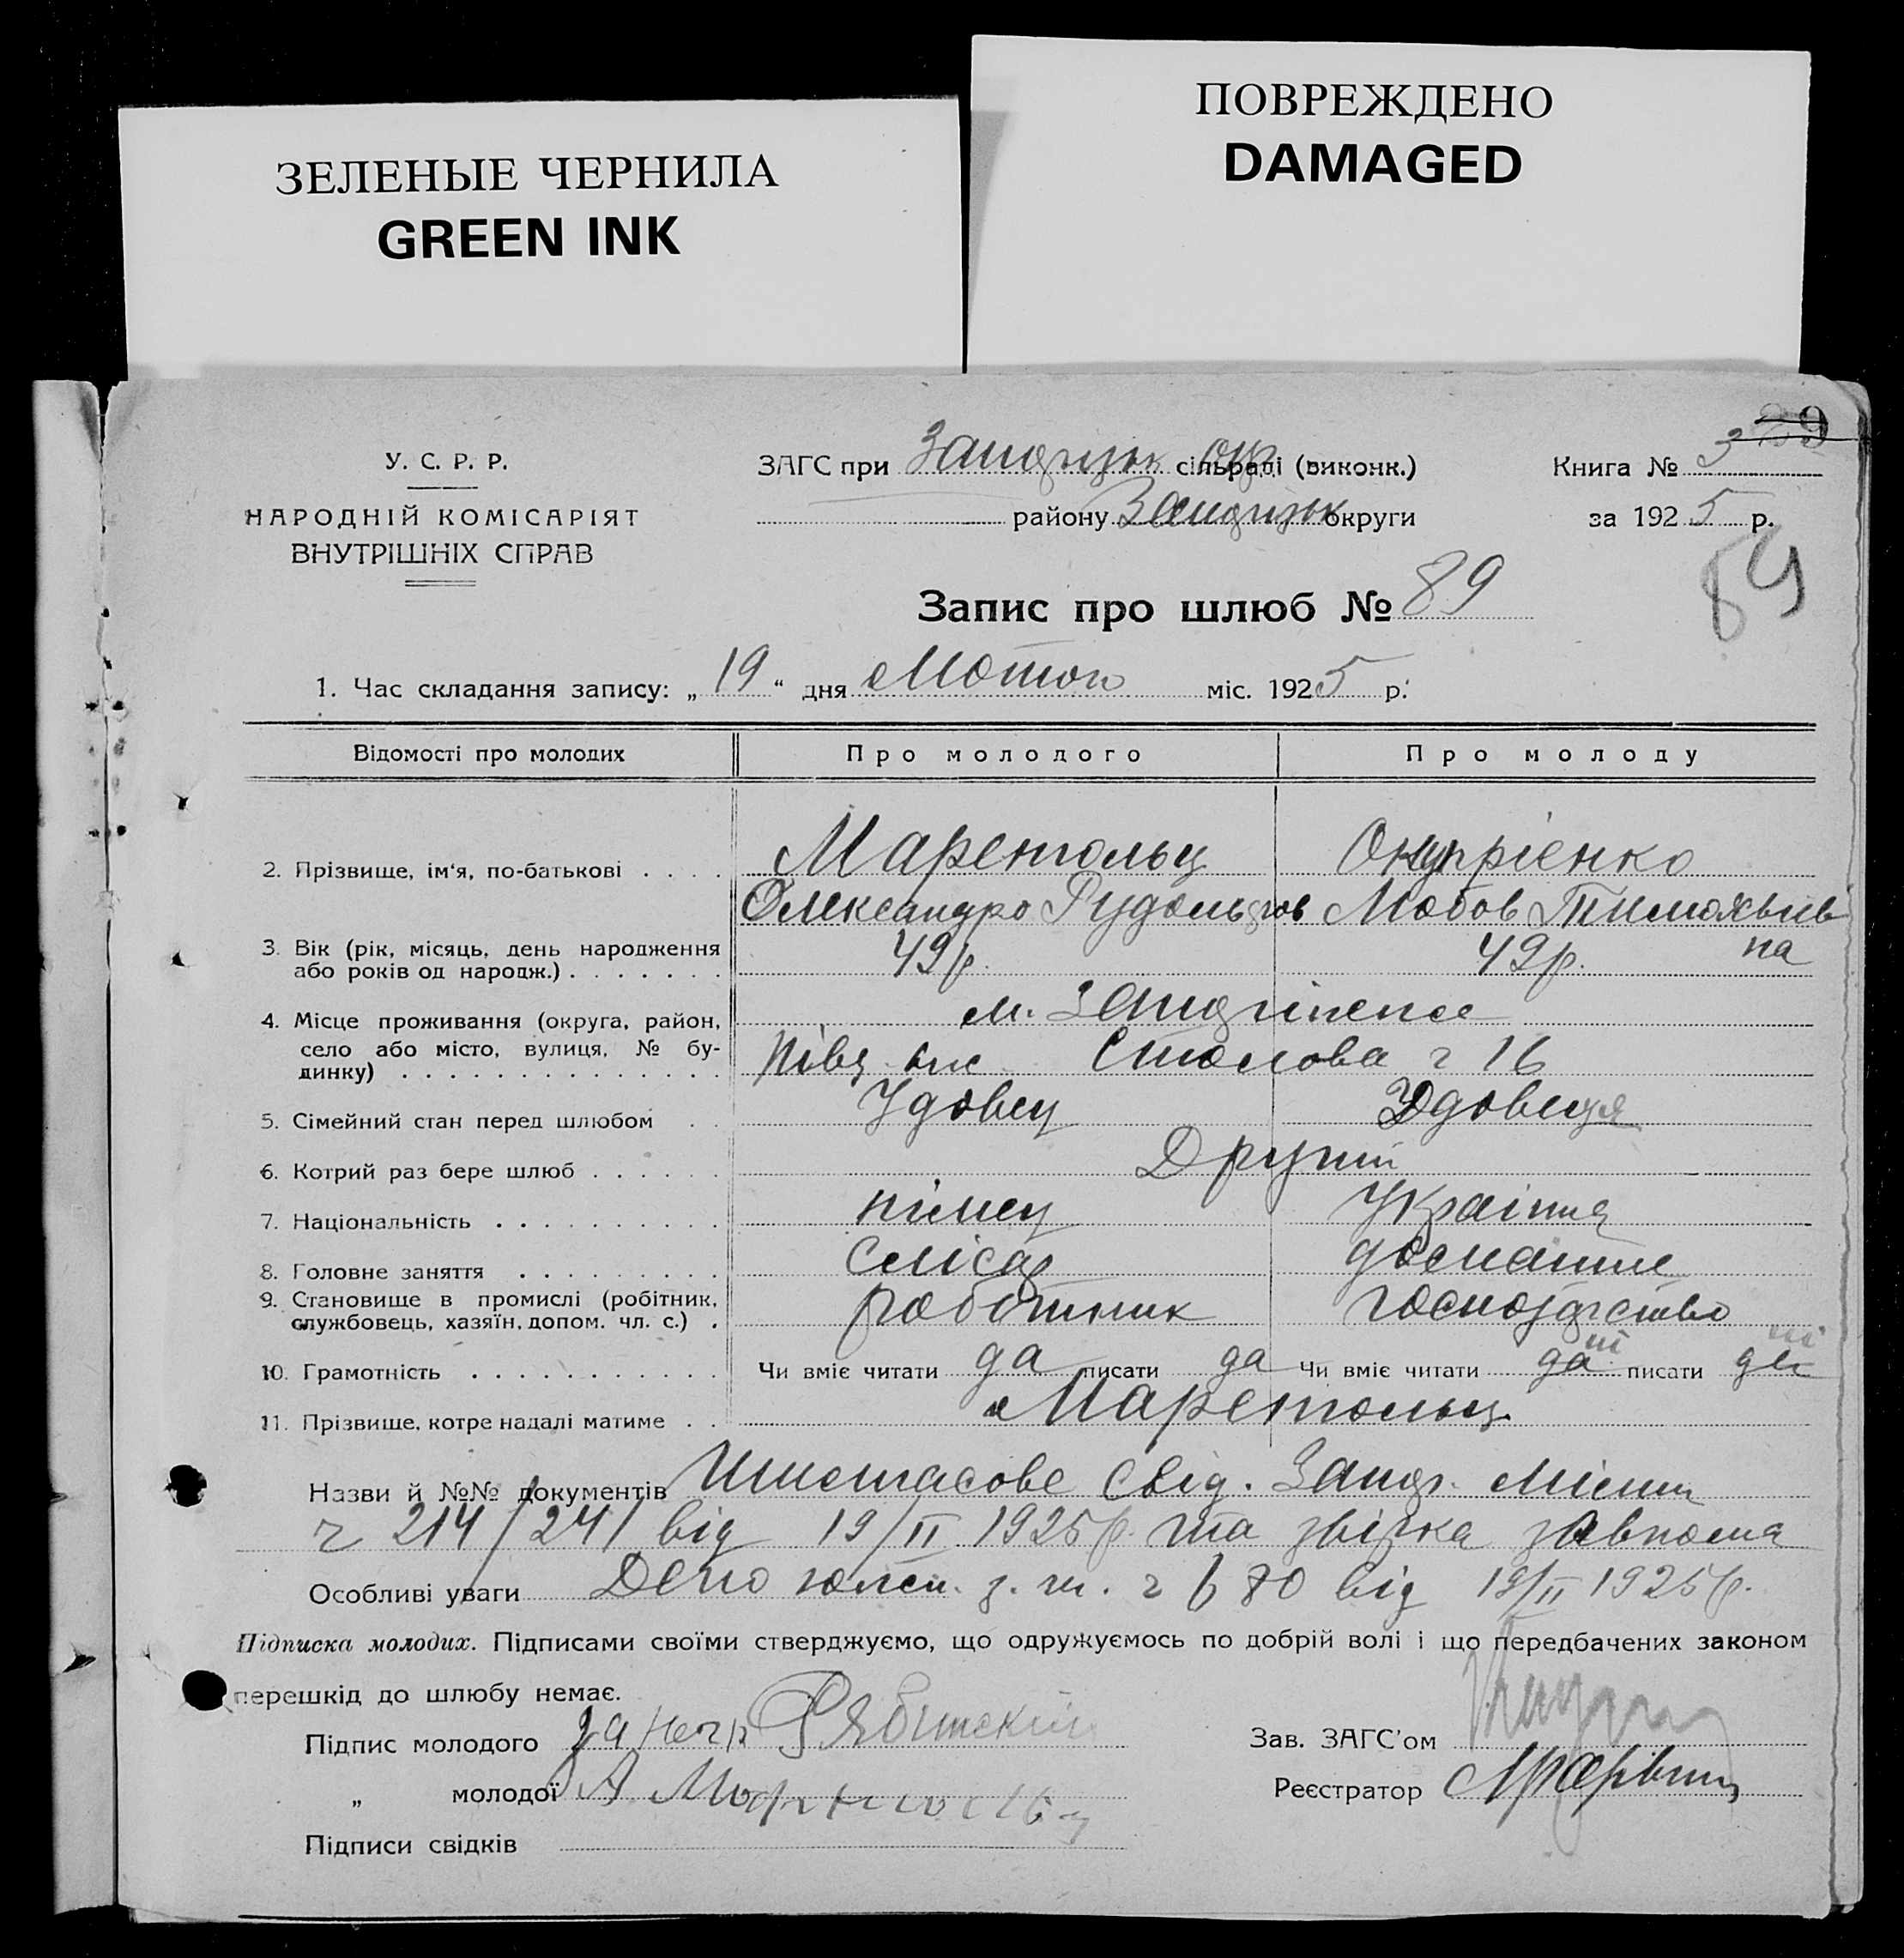 ЗЕЛЕНЫЕ ЧЕРНИЛА
GREEN INK
ПОВРЕЖДЕНО
DAMAGED
У. С. Р. Р.
НАРОДНІЙ КОМІСАРІЯТ
ВНУТРІШНІХ СПРАВ
ЗАГС при сільраді (виконк.)
району округи
Книга № 3
за 1925 р.
89
Запис про шлюб № 89
1. Час складання запису: „ 19 “ дня Лютого міс. 1925 р.
Відомості про молодих Про молодого Про молоду
2. Прізвище, ім'я, по-батькові . . . . Маренгольц Онуприенко
Олександро Рудольфов Любов Тимохвиев
на
3. Вік (рік, місяць, день народження
або років од народж.) . . . . . . . 49 р. 42 р.
4. Місце проживання (округа, район,
село або місто, вулиця, № бу-
динку) . . . . . . . . . . . . . . м.
Столова ч 16
5. Сімейний стан перед шлюбом . . Удовец Удовиця
6. Котрий раз бере шлюб . . . . . . Другий
7. Національність . . . . . . . . . . німец Україн
8. Головне заняття . . . . . . . . . слісар домашне
9. Становище в промислі (робітник,
службовець, хазяїн, допом. чл. с.) . работник господарство
10. Грамотність . . . . . . . . . . . Чи вміє читати да писати да Чи вміє читати да ні писати да ні
11. Прізвище, котре надалі матиме . . Маренгольц
Назви й №№ документів свід.
ч 214/241 від 19/II 1925 р. та
Особливі уваги Депо від 19/II 1925 р.
Підписка молодих. Підписами своїми стверджуємо, що одружуємось по добрій волі і що передбачених законом
перешкід до шлюбу немає.
Підпис молодого
„ молодої А.
Підписи свідків
Зав. ЗАГС'ом
Реєстратор